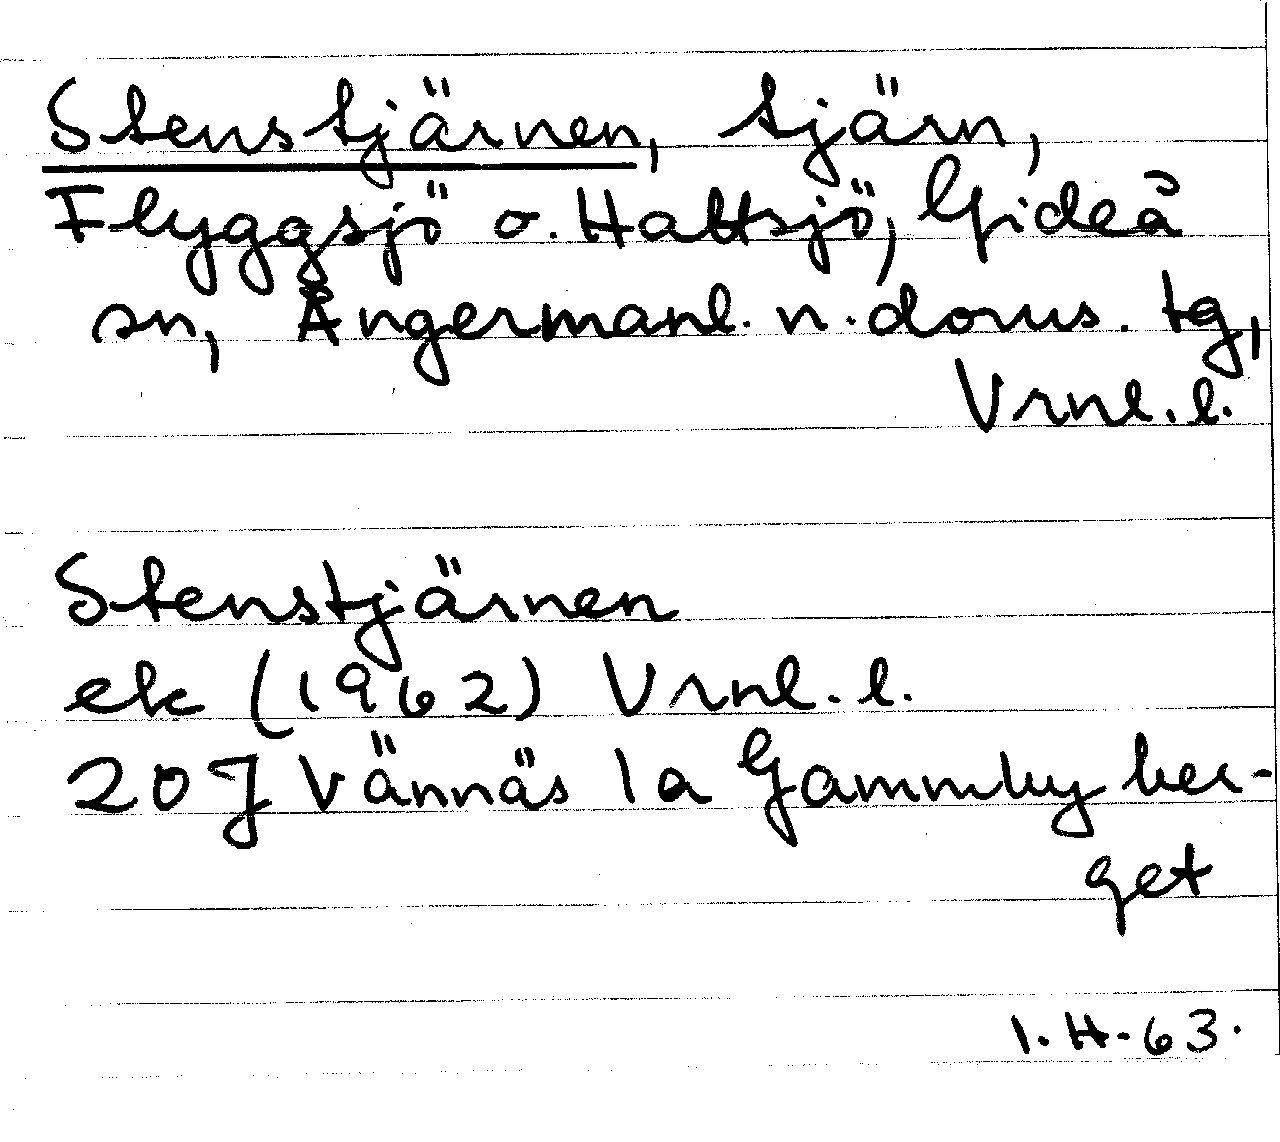 Stenstjärnen, tjärn,
Flyggsjö o. Hattsjö, Gideå
sn, Ångermanl. n. doms. tg,
Vrnl. l.
Stenstjärnen
ek (1962) Vrnl. l.
20 J Vännäs 1a Gammbyber-
get
I. H-63.